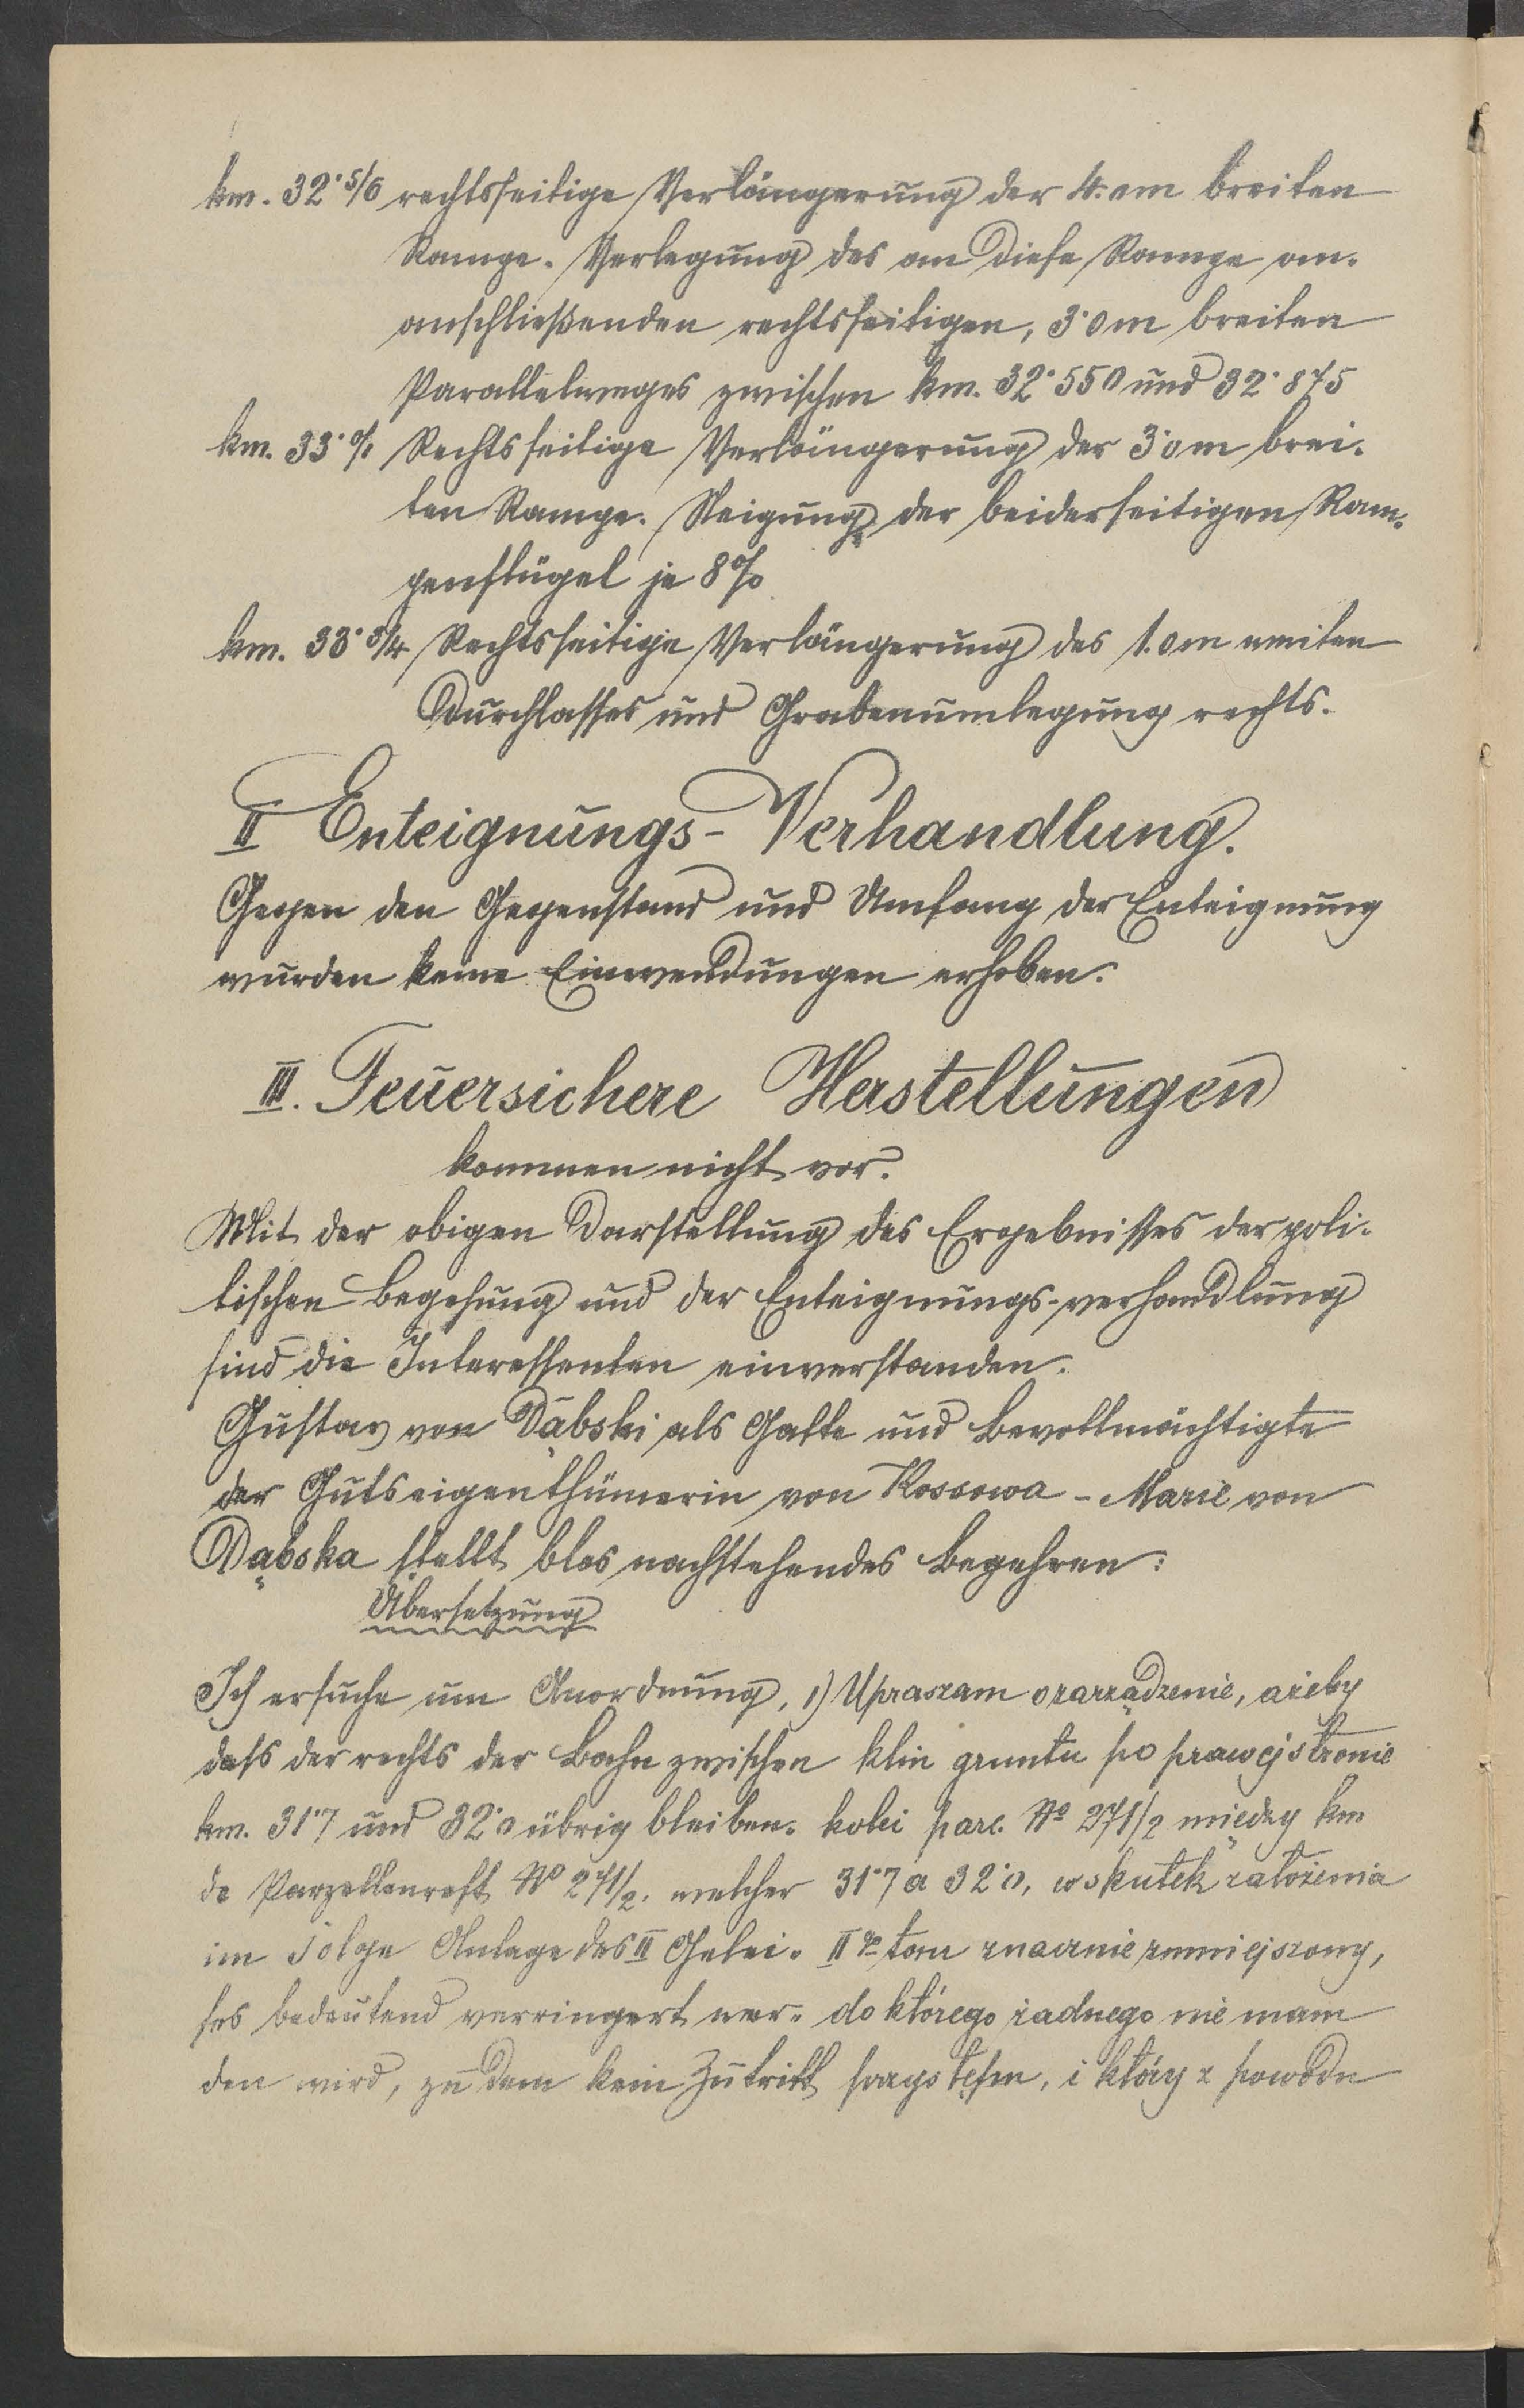 km. 32·5/6 rechtsseitige Verlängerung der 4.0m breiten
Rampe. Verlegung des an diese Rampe an-
anschließenden rechtsseitigen, 3·0m breiten
Parallelweges zwischen km. 32·550 und 32·875
km. 33·0/1 Rechtsseitige Verlängerung der 3·0m brei-
ten Rampe. Neigung der beiderseitigen Ram-
penflügel je 8%
km. 33·3/4 Rechtsseitige Verlängerung des 1.0m weiten
Durchlasses und Grabenumlegung rechts.
II Enteignungs-Verhandlung.
Gegen den Gegenstand und Umfang der Enteignung
wurden keine Einwendungen erhoben.
III. Feuersichere Herstellungen
kommen nicht vor.
Mit der obigen Darstellung des Ergebnisses der poli-
tischen Begehung und der Enteignungs-verhandlung
sind die Interessenten einverstanden.
Gustav von Dąbski als Gatte und Bevollmächtigte
der Gutseigenthümerin von Kossowa - Marie von
Dąbska stellt blos nachstehendes Begehren:
Übersetzung
Ich ersuche um Anordnung, 1) Upraszam o zarządzenie, ażeby
dass der rechts der Bahn zwischen klin gruntu po prawej stronie
km. 31·7 und 32·0 übrig bleiben- kolei parc. No 271/2 między km
de Parzellenrest No 271/2. welcher 31·7 a 32·0, wskutek założenia
im Folge Anlage des II Gelei- II go toru znacznie zmniejszony,
ses bedeutend verringert wer- do którego żadnego nie mam
den wird, zu dem kein Zutritt przystępu, i który z powodu